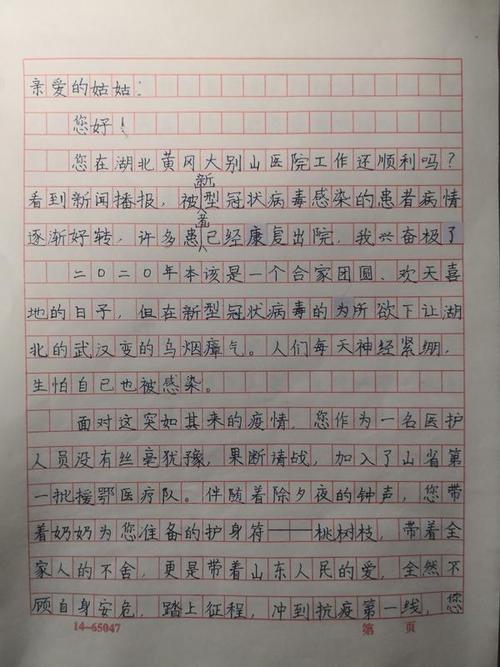 亲爱的姑姑：
您好！
您在湖北黄冈大别山医院工作还顺利吗？
看到新闻播报，被新型冠状病毒感染的患者病情
逐渐好转，许多患者已经康复出院，我兴奋极了
二〇二〇年本该是一个合家团圆、欢天喜
地的日子，但在新型冠状病毒的为所欲下让湖
北的武汉变的乌烟瘴气。人们每天神经紧绷，
生怕自己也被感染。
面对这突如其来的疫情，您作为一名医护
人员没有丝毫犹豫，果断请战，加入了山省第
一批援鄂医疗队。伴随着除夕夜的钟声，您带
着奶奶为您准备的护身符——桃树枝，带着全
家人的不舍，更是带着山东人民的爱，全然不
顾自身安危，踏上征程，冲到抗疫第一线，您
14-65047 第 页